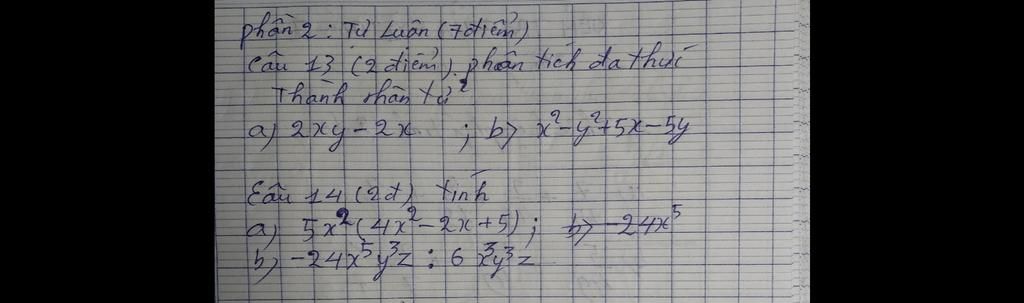 phần 2: Tự Luận (7 điểm)
Câu 13 (2 điểm). phân tích đa thức
Thành nhân tử
a) 2xy - 2x ; b) x² - y² + 5x - 5y
Câu 14 (2đ) tính
a) 5x² (4x² - 2x + 5) ; b) -24x⁵
b) -24x⁵y³z : 6x³y³z